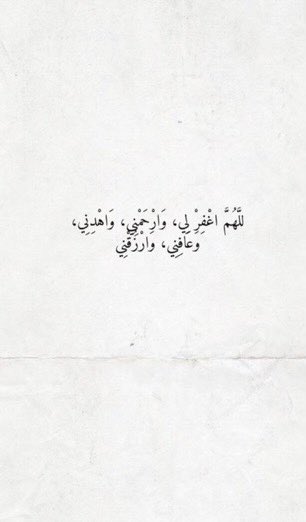 للَّهُمَّ اغْفِرْ لِي، وَارْحَمْنِي، وَاهْدِنِي،
وعَافِنِي، وَارْزُقْنِي